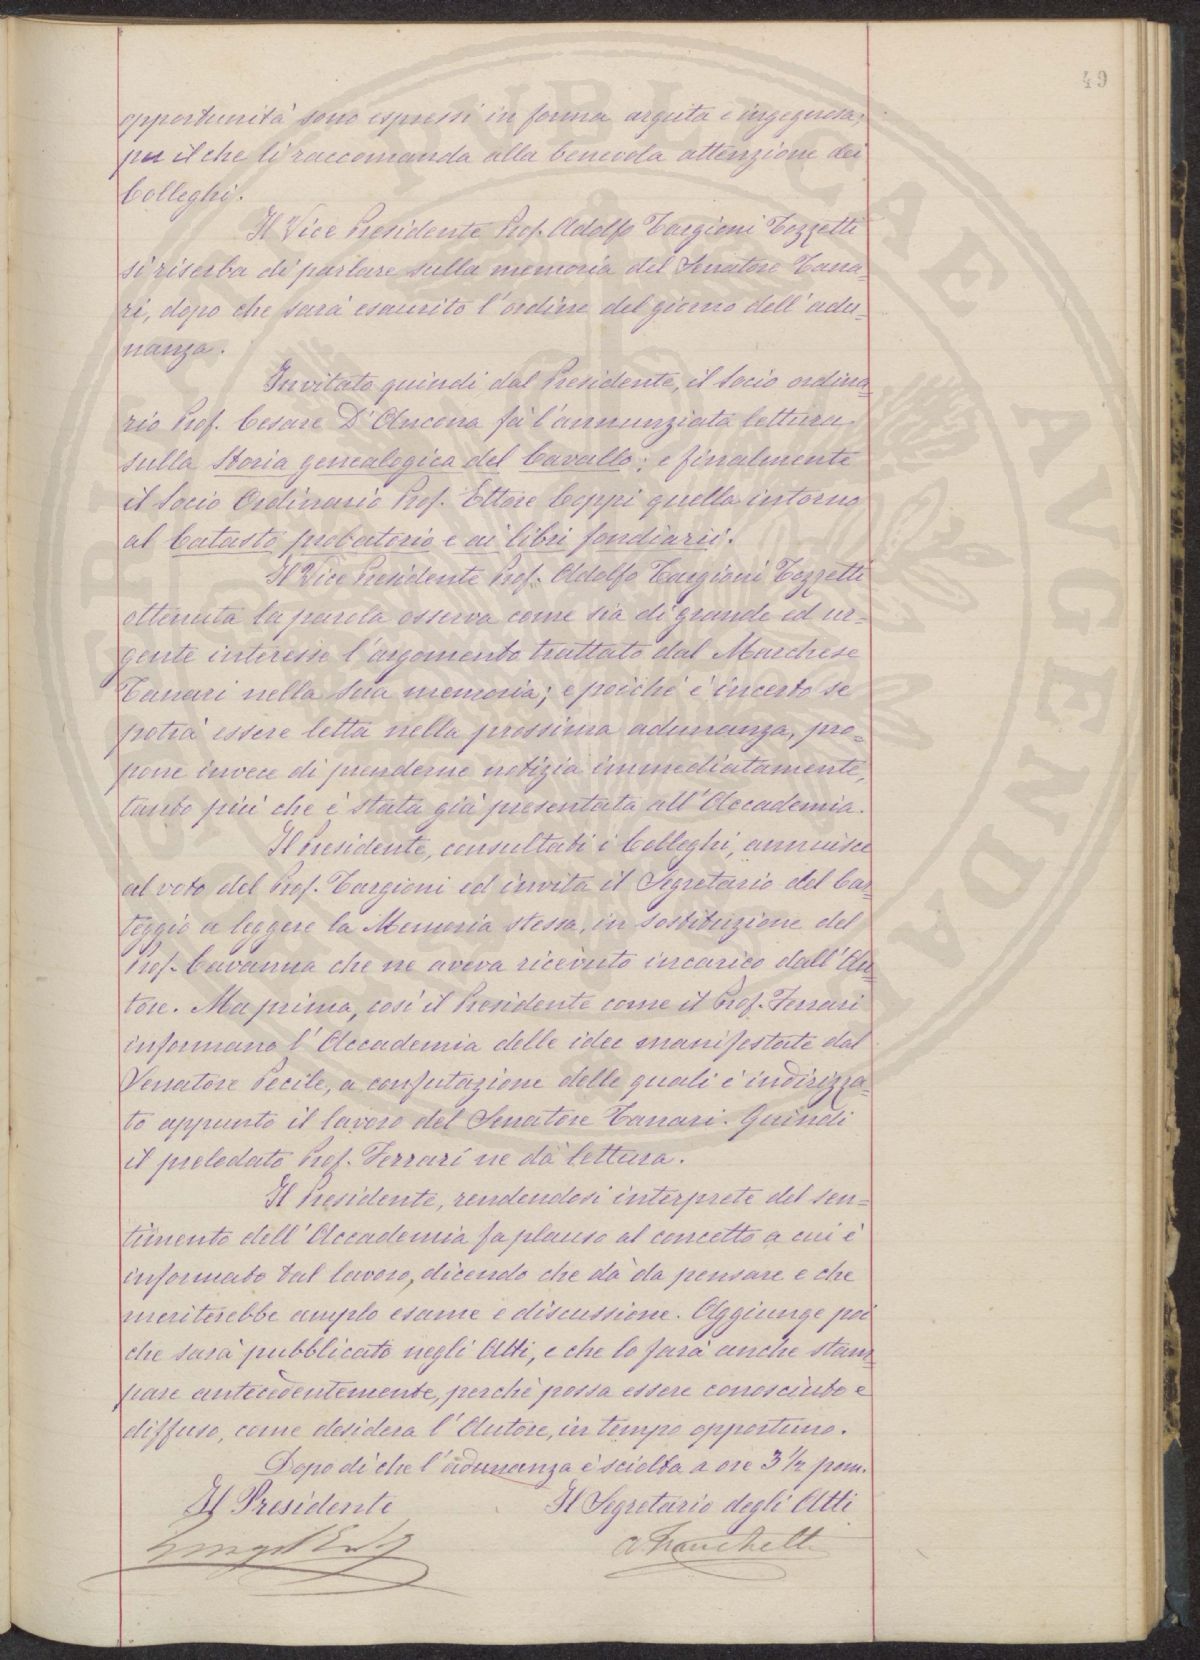 49
opportunità sono espressi in forma arguta e ingegnosa;
per il che li raccomanda alla benevola attenzione dei
Colleghi.
Il Vice Presidente Prof. Adolfo Targioni Tozzetti
si riserba di parlare sulla memoria del Senatore Tana=
ri, dopo che sarà esaurito l'ordine del giorno dell'adu=
nanza.
Invitato quindi dal Presidente, il Socio ordina=
rio Prof. Cesare D'Ancona fa l'annunziata lettura
sulla Storia genealogica del Cavallo; e finalmente
il Socio Ordinario Prof. Ettore Coppi quella intorno
al Catasto probatorio e ai libri fondiarii.
Il Vice Presidente Prof. Adolfo Targioni Tozzetti
ottenuta la parola osserva come sia di grande ed ur=
gente interesse l'argomento trattato dal Marchese
Tanari nella sua memoria; e poiché è incerto se
potrà essere letta nella prossima adunanza, pro=
pone invece di prenderne notizia immediatamente,
tanto più che è stata già presentata all'Accademia.
Il Presidente, consultati i Colleghi, annuisce
al voto del Prof. Targioni ed invita il Segretario del Car=
teggio a leggere la Memoria stessa, in sostituzione del
Prof. Cavanna che ne aveva ricevuto incarico dall'Au=
tore. Ma prima, così il Presidente come il Prof. Ferrari
informano l'Accademia delle idee manifestate dal
Senatore Pecile, a confutazione delle quali è indirizza=
to appunto il lavoro del Senatore Tanari. Quindi
il prelodato Prof. Ferrari ne dà lettura.
Il Presidente, rendendosi interprete del sen=
timento dell'Accademia fa plauso al concetto a cui è
informato tal lavoro, dicendo che dà da pensare e che
meriterebbe amplo esame e discussione. Aggiunge poi
che sarà pubblicato negli Atti, e che lo farà anche stam=
pare antecedentemente, perchè possa essere conosciuto e
diffuso, come desidera l'Autore, in tempo opportuno.
Dopo di che l'adunanza è sciolta a ore 3 1/2 pom.
Il Presidente Il Segretario degli Atti
A Franchetti